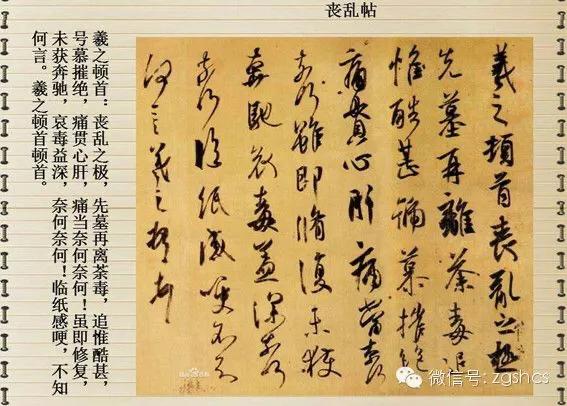 丧乱帖
羲之頓首喪亂之極
先墓再離荼毒追
惟酷甚號慕摧絶
痛貫心肝痛當奈何
奈何雖即脩復未獲
奔馳哀毒益深奈何
奈何臨紙感哽不知
何言羲之頓首頓首
羲之顿首：丧乱之极，先墓再离荼毒，追惟酷甚，
号慕摧绝，痛贯心肝，痛当奈何奈何！虽即修复，
未获奔驰，哀毒益深，奈何奈何！临纸感哽，不知
何言。 羲之顿首顿首。
微信号: zgshcs